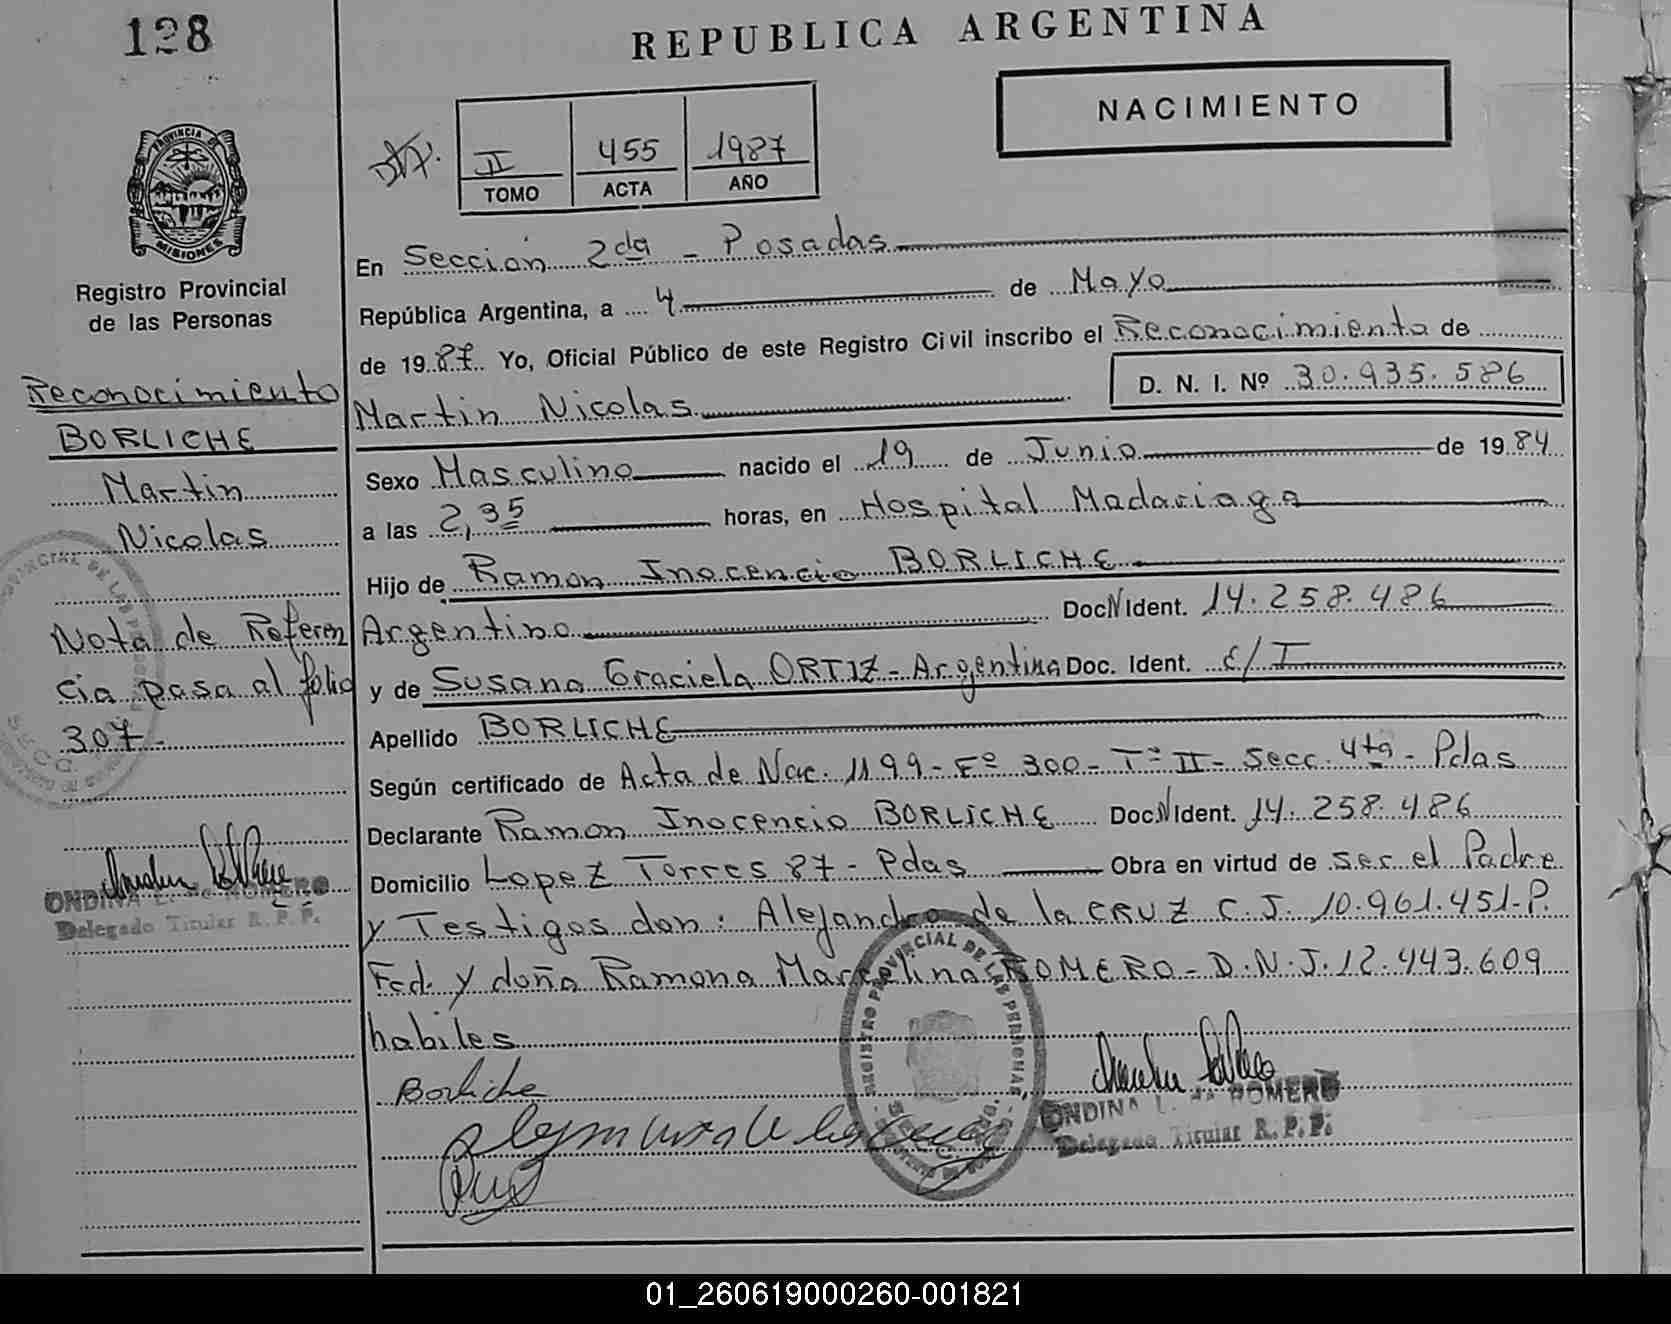 128
REPUBLICA ARGENTINA
NACIMIENTO
II 455 1987
TOMO ACTA AÑO
PROVINCIA DE
MISIONES
Registro Provincial
de las Personas
Reconocimiento
BORLICHE
Martin
Nicolas
Nota de Referen
cia pasa al folio
307.-
ONDINA L. de ROMERO
Delegado Titular R. P. P.
En Sección 2da - Posadas
República Argentina, a 4 de Mayo
de 1987. Yo, Oficial Público de este Registro Civil inscribo el Reconocimiento de
Martin Nicolas D. N. I. Nº 30.935.586
Sexo Masculino nacido el 19 de Junio de 1984
a las 2,35 horas, en Hospital Madariaga
Hijo de Ramon Inocencio BORLICHE
Argentino Doc N Ident. 14.258.486
y de Susana Graciela ORTIZ - Argentina Doc. Ident. C/I
Apellido BORLICHE
Según certificado de Acta de Nac. 1199 - Fº 300 - Tº II - Secc. 4ta - Pdas
Declarante Ramon Inocencio BORLICHE Doc N Ident. 14.258.486
Domicilio Lopez Torres 87 - Pdas Obra en virtud de ser el Padre
y Testigos don: Alejandro de la CRUZ C.I. 10.961.451-P.
Fed. y doña Ramona Marcelina ROMERO - D.N.I. 12.443.609
habiles
Borliche
REGISTRO PROVINCIAL DE LAS PERSONAS
ONDINA L. de ROMERO
Delegado Titular R. P. P.
01_260619000260-001821